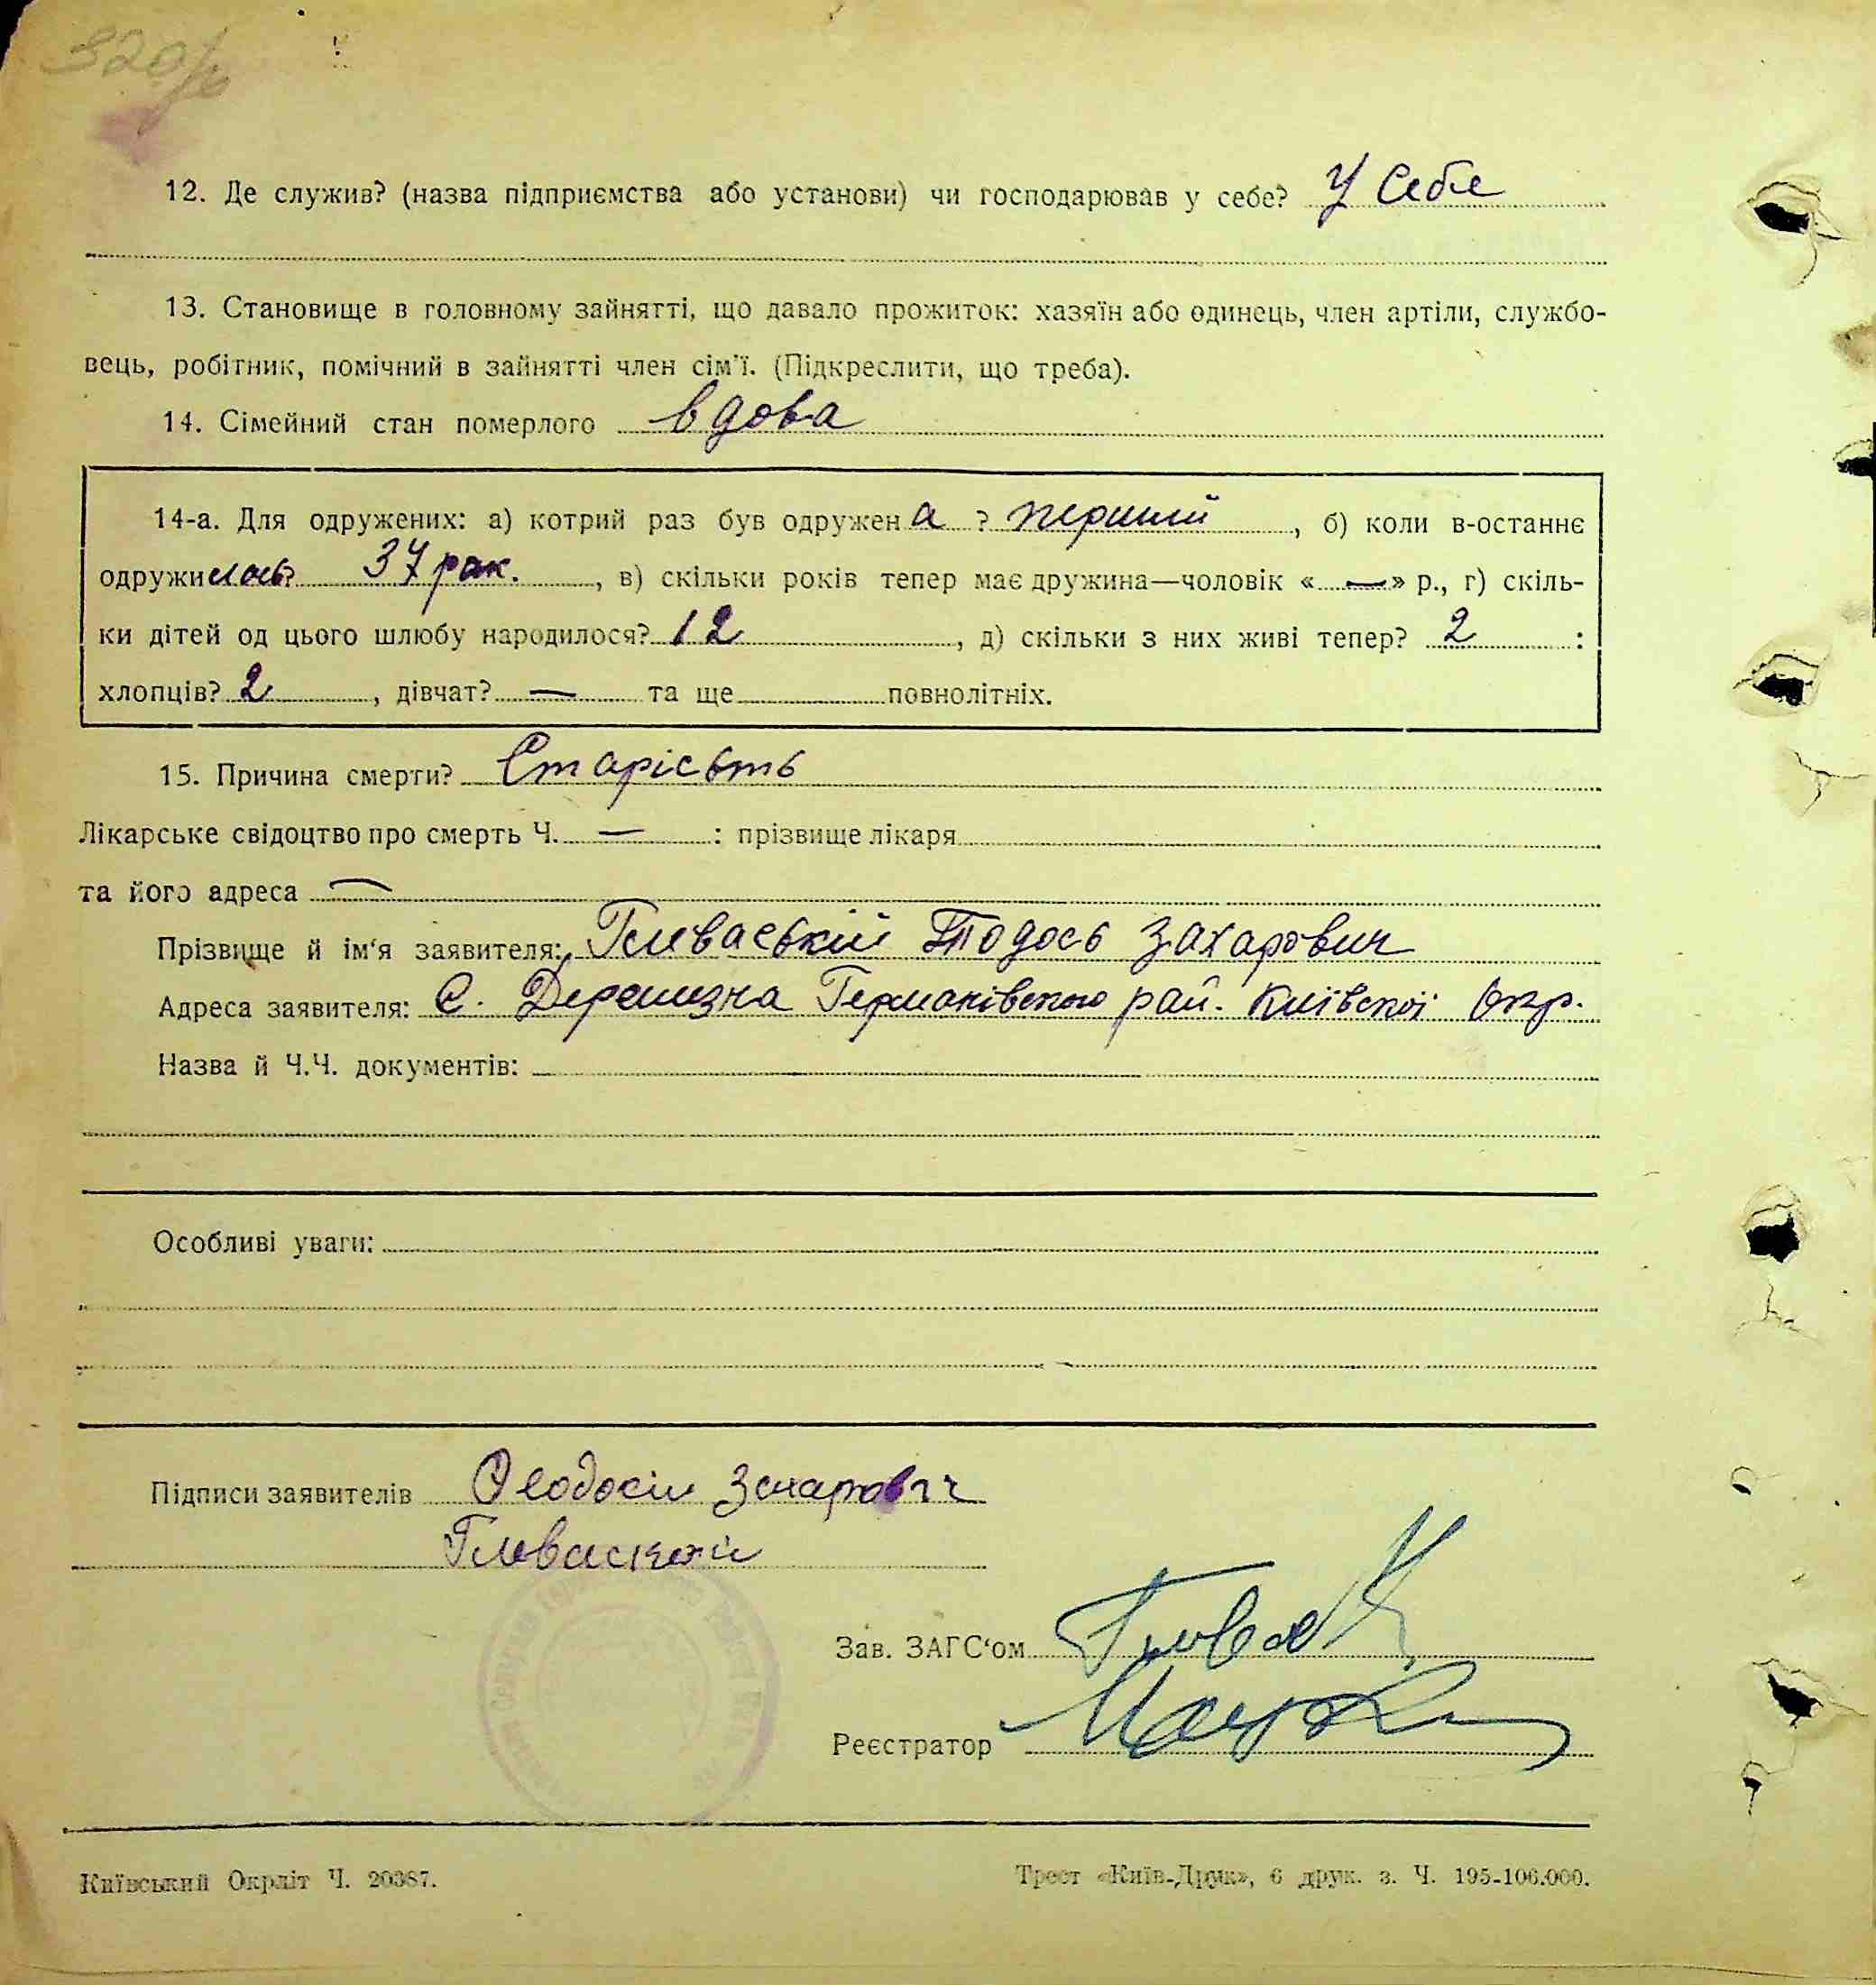 320/
12. Де служив? (назва підприємства або установи) чи господарював у себе? У себе
13. Становище в головному зайнятті, що давало прожиток: хазяїн або одинець, член артіли, службо-
вець, робітник, помічний в зайнятті член сім'ї. (Підкреслити, що треба).
14. Сімейний стан померлого вдова
14-а. Для одружених: а) котрий раз був одружен а ? перший, б) коли в-останнє
одружилась? 37 рок., в) скільки років тепер має дружина—чоловік «—» р., г) скіль-
ки дітей од цього шлюбу народилося? 12, д) скільки з них живі тепер? 2 :
хлопців? 2, дівчат? — та ще повнолітніх.
15. Причина смерти? Старісьть
Лікарське свідоцтво про смерть Ч. — : прізвище лікаря
та його адреса —
Прізвище й ім'я заявителя: Гливаській Тодось Захарович
Адреса заявителя: С. Деремезна Германівського рай. Київскої Окр.
Назва й Ч.Ч. документів:
Особливі уваги:
Підписи заявителів Феодосій Захарович
Гливаский
Зав. ЗАГС'ом
Реєстратор
Київський Окрліт Ч. 20387.
Трест «Київ-Друк», 6 друк. з. Ч. 195-106.000.